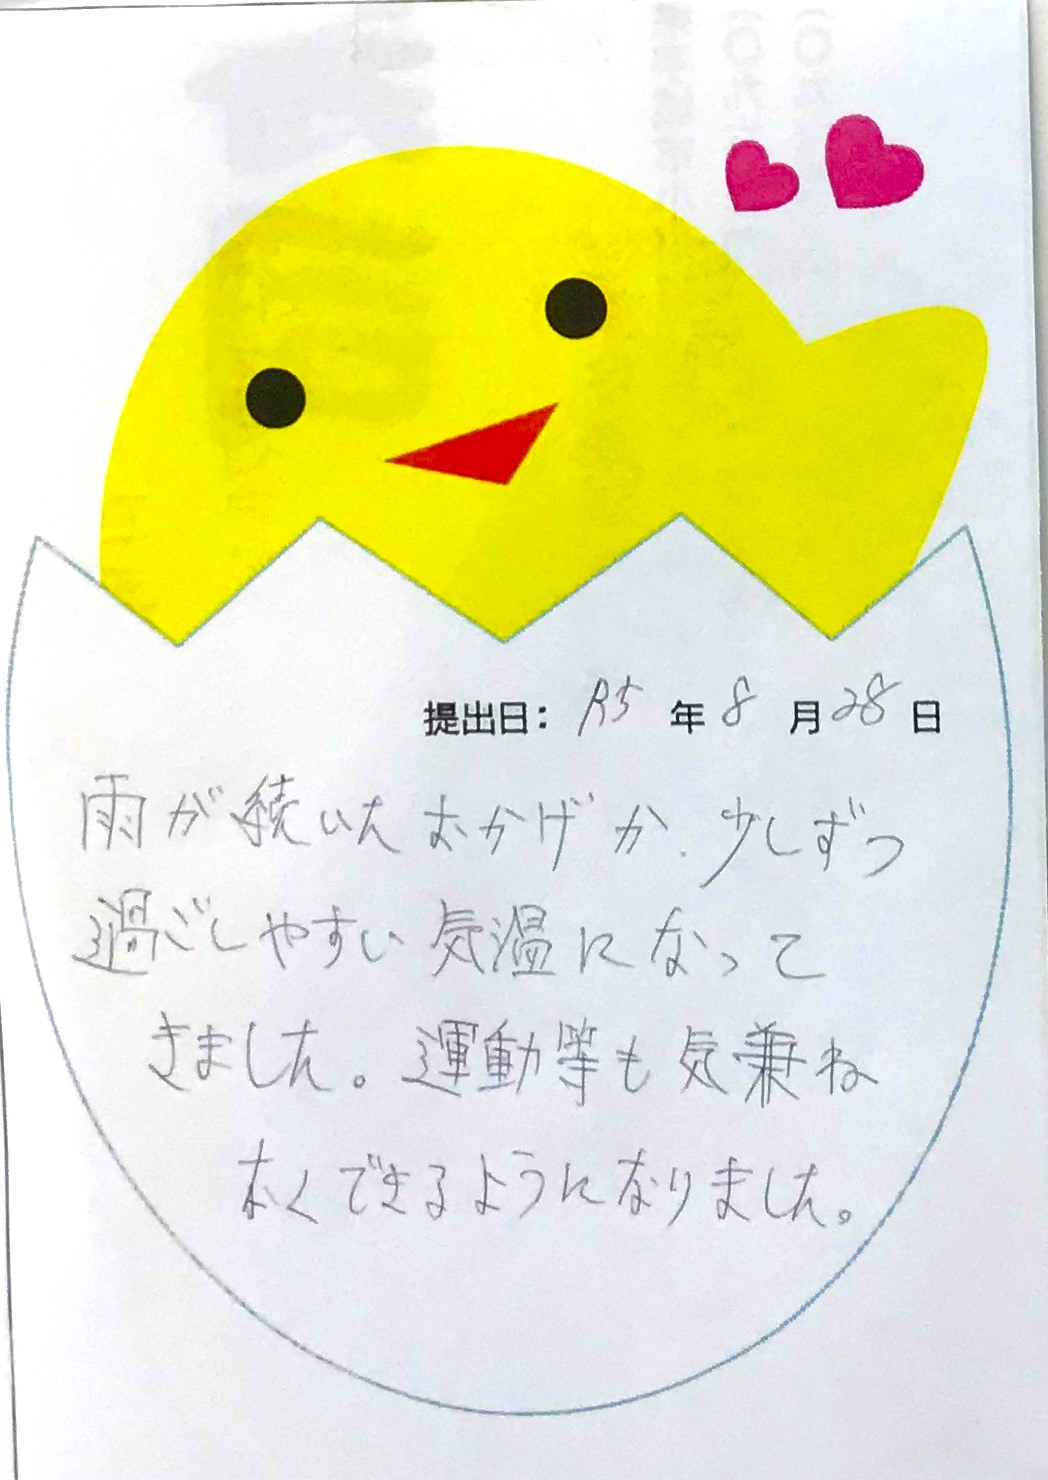 提出日: R5 年 8 月 28 日
雨が続いたおかげか、少しずつ
過ごしやすい気温になって
きました。運動等も気兼ね
なくできるようになりました。